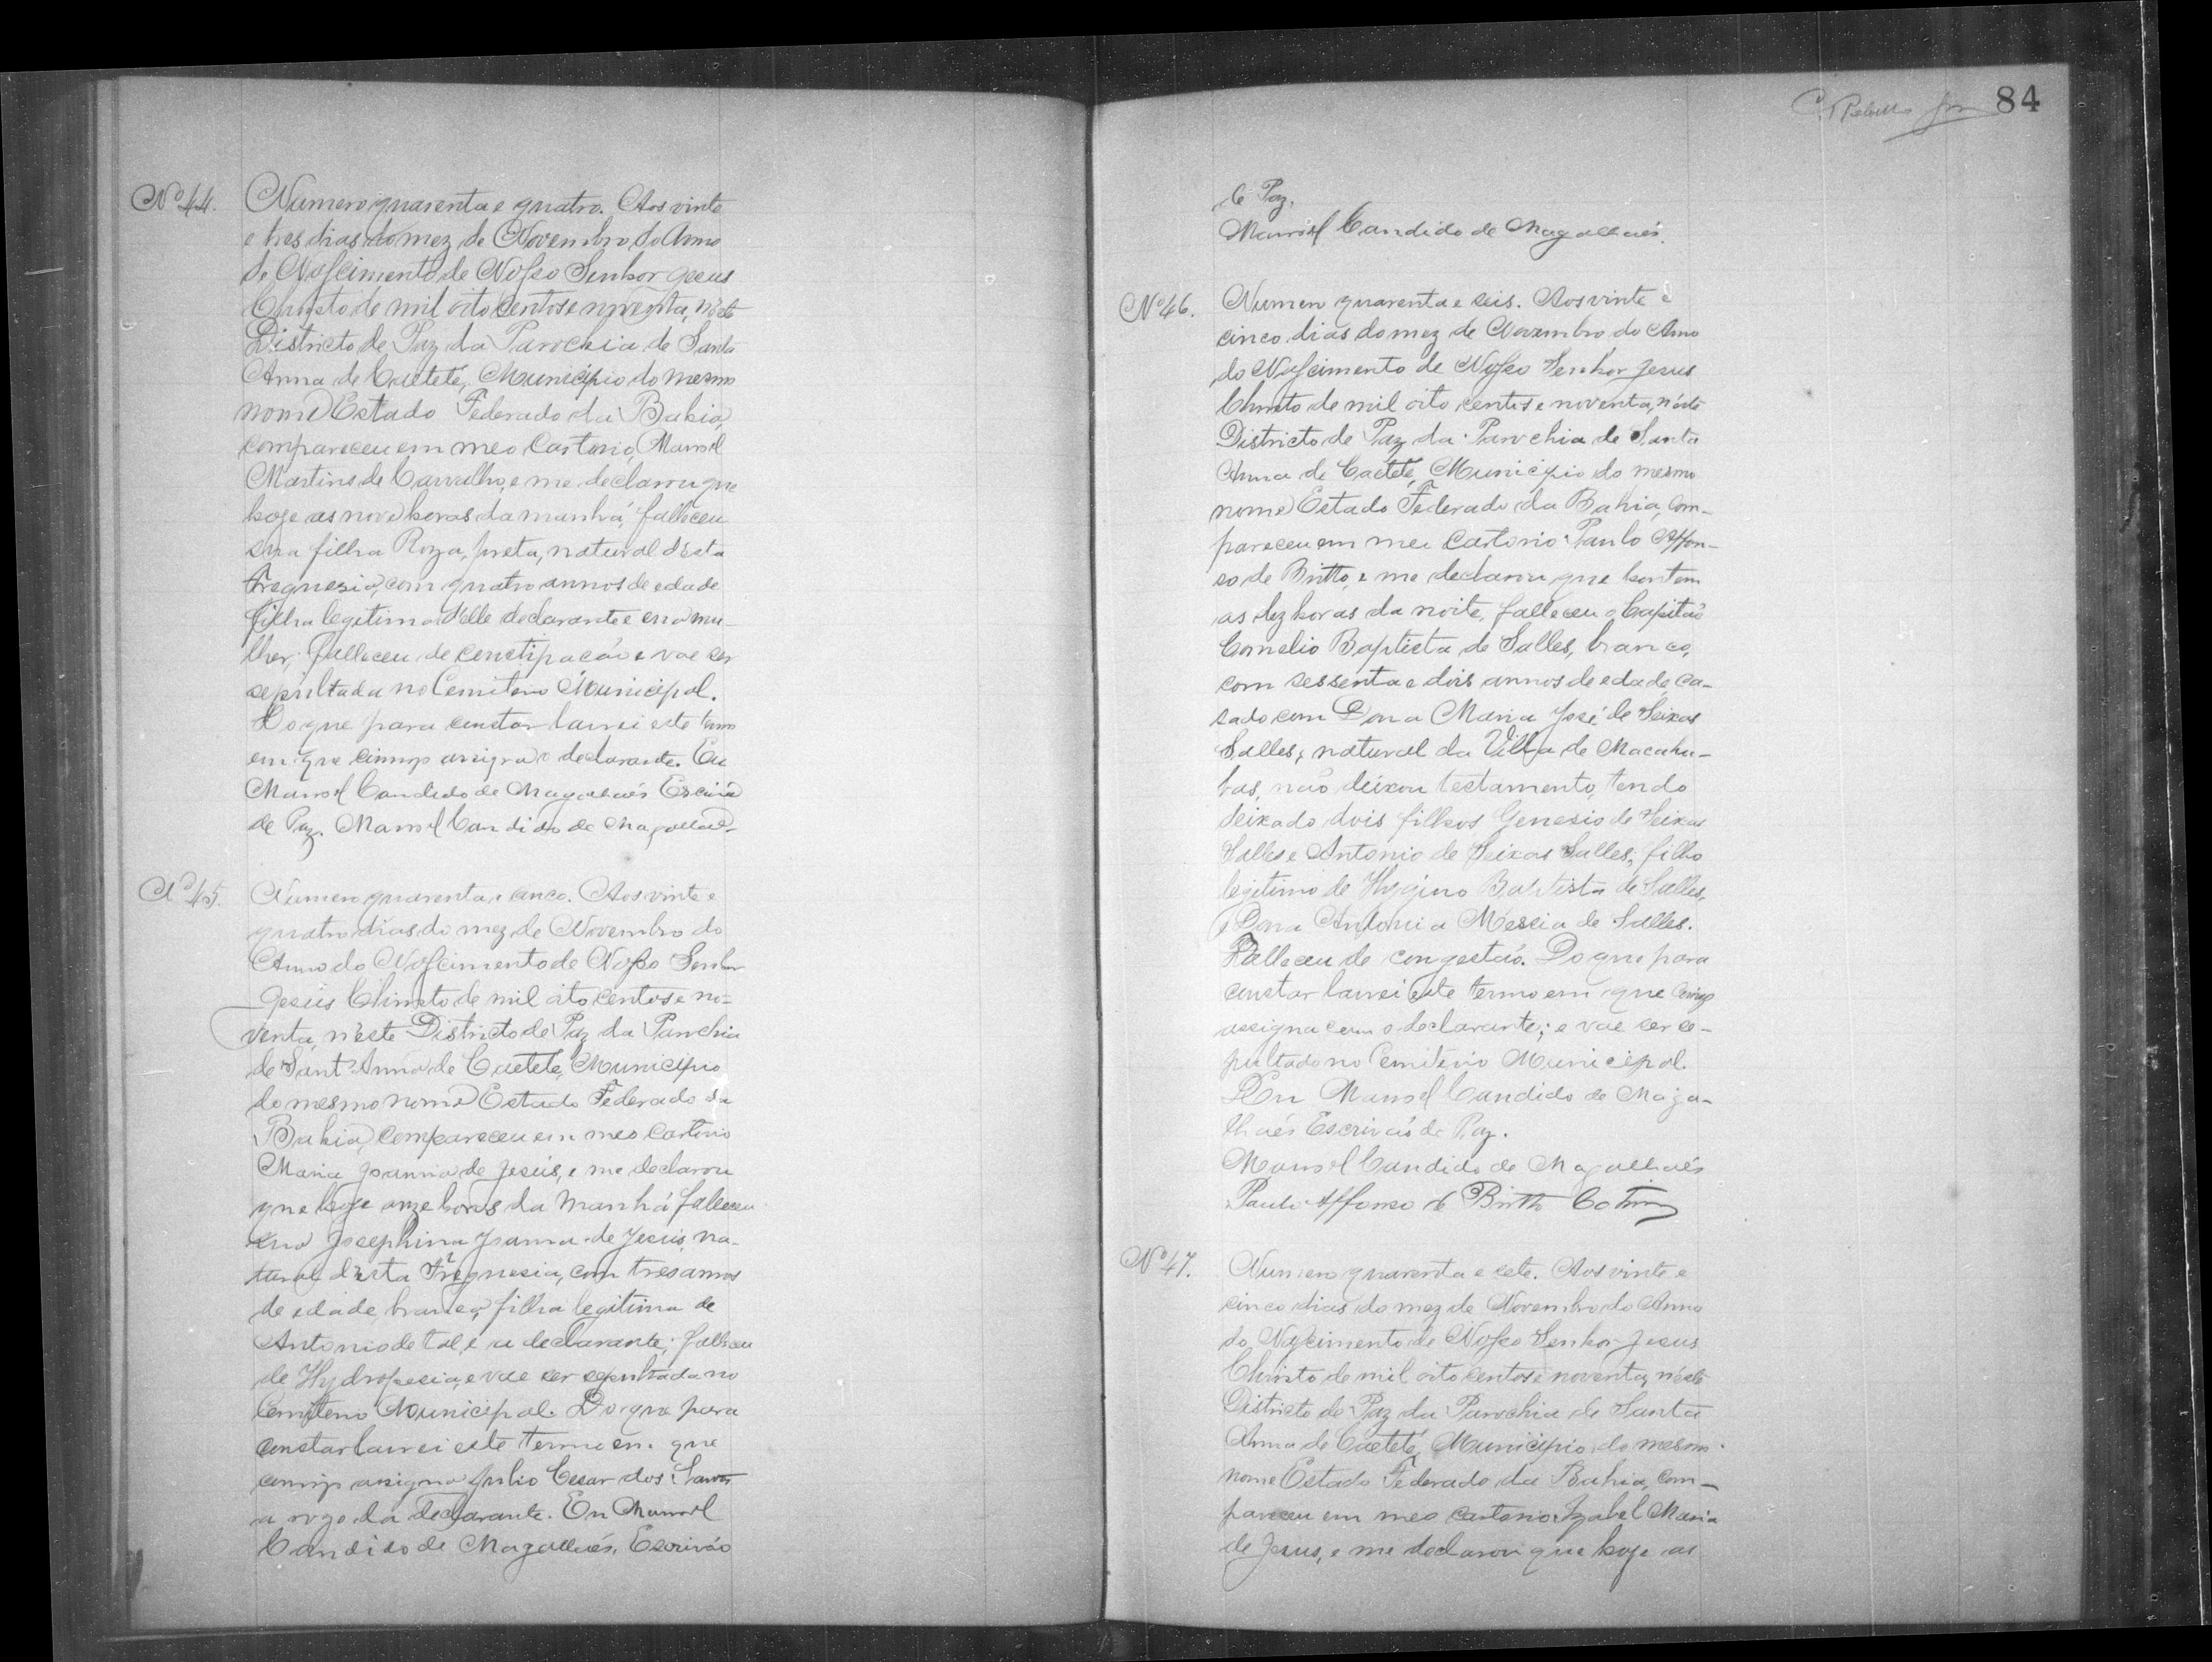 Nº 44.
Numero quarenta e quatro. Aos vinte
e tres dias do mez de Novembro do Anno
do Nascimento de Nosso Senhor Jesus
Christo de mil oito centos e noventa, n'este
Districto de Paz da Parochia de Santa
Anna de Caeteté, Municipio do mesmo
nome Estado Federado da Bahia,
compareceu em meo Cartorio, Manoel
Martins de Carvalho, e me declarou que
hoje as nove horas da manhã, falleceu
sua filha Roza, preta, natural d'esta
Freguezia, com quatro annos de edade
filha legitima d'elle declarante e sua mu-
lher; falleceu de constipacão e vae ser
sepultada no Cemiterio Municipal.
Do que para constar lavrei este termo
em que comigo assigna o declarante. Eu
Manoel Candido de Magalhaés Escrivão
de Paz. Manoel Candido de Magalhaés
Nº 45.
Numero quarenta e cinco. Aos vinte e
quatro dias do mez de Novembro do
Anno do Nascimento de Nosso Senhor
Jesús Christo de mil oito centos e no-
venta, n'este Districto de Paz da Parochia
de Sant'Anna de Caeteté, Municipio
do mesmo nome Estado Federado da
Bahia, compareceu em meo Cartorio
Maria Joanna de Jesús, e me declarou
que hoje onze horas da manhã falleceu
sua Josephina Joanna de Jesús, na-
tural d'esta Freguesia, com tres annos
de edade, branca, filha legitima de
Antonio de tal, e a declarante; falleceu
de Hydropesia, e vae ser sepultada no
Cemiterio Municipal. Do que para
constar lavrei este termo em que
comigo assigna Julio Cesar dos Santos
a rogo da declarante. Eu Manoel
Candido de Magalhaés, Escrivão
84
de Paz.
Manoel Candido de Magalhaés.
Nº 46.
Numero quarenta e seis. Aos vinte e
cinco dias do mez de Novembro do Anno
do Nascimento de Nosso Senhor Jesus
Christo de mil oito centos e noventa, n'este
Districto de Paz da Parochia de Santa
Anna de Caeteté, Municipio do mesmo
nome Estado Federado da Bahia, com-
pareceu em meu Cartorio Paulo Affon-
so de Britto, e me declarou que hontem
as dez horas da noite, falleceu o Capitão
Cornelio Baptista de Salles, branco,
com sessenta e dois annos de edade, ca-
sado com Dona Maria José de Seixas
Salles, natural da Villa de Macahu-
bas, não deixou testamento, tendo
deixado dois filhos Genesio de Seixas
Salles e Antonio de Seixas Salles; filho
legitimo de Hygino Baptista de Salles,
e Dona Antonia Messia de Salles.
Falleceu de congestão. Do que para
constar lavrei este termo em que comigo
assigna com o declarante; e vae ser se-
pultado no Cemiterio Municipal.
Eu Manoel Candido de Maga-
lhaés Escrivão de Paz.
Manoel Candido de Magalhaés
Paulo Affonso de Britto
Nº 47.
Numero quarenta e sete. Aos vinte e
cinco dias do mez de Novembro do Anno
do Nascimento de Nosso Senhor Jesus
Christo de mil oito centos e noventa, n'este
Districto de Paz da Parochia de Santa
Anna de Caeteté, Municipio do mesmo
nome Estado Federado da Bahia, com-
pareceu em meo cartorio Izabel Maria
de Jesus, e me declarou que hoje as